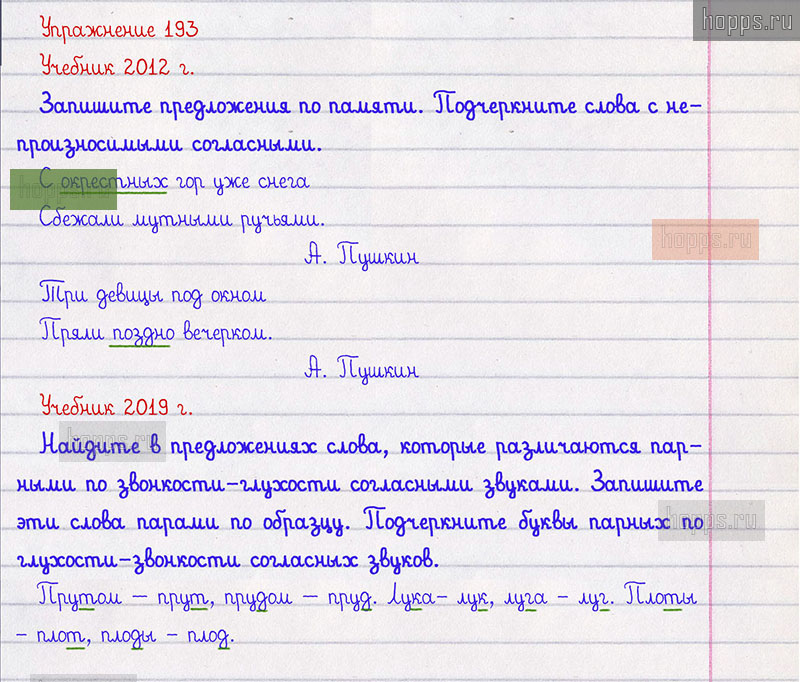 hopps.ru
Упражнение 193
Учебник 2012 г.
Запишите предложения по памяти. Подчеркните слова с не-
произносимыми согласными.
С окрестных гор уже снега
hopps.ru
Сбежали мутными ручьями.
hopps.ru
А. Пушкин
Три девицы под окном
Пряли поздно вечерком.
А. Пушкин
Учебник 2019 г.
hopps.ru
Найдите в предложениях слова, которые различаются пар-
ными по звонкости-глухости согласными звуками. Запишите
эти слова парами по образцу. Подчеркните буквы парных по
hopps.ru
глухости-звонкости согласных звуков.
Прутом – прут, прудом – пруд. Лука- лук, луга - луг. Плоты
- плот, плоды - плод.